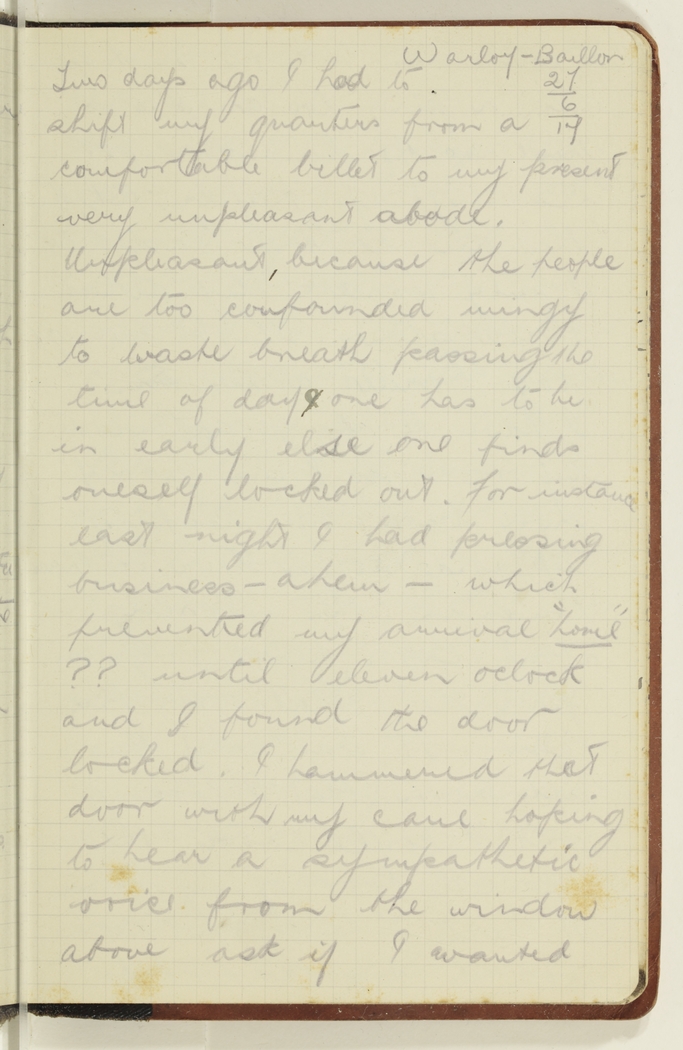 Warloy-Baillon
27
6
17
Two days ago I had to
shift my quarters from a
comfortable billet to my present
very unpleasant abode.
Unpleasant, because the people
are too confounded mingy
to waste breath passing the
time of day & one has to be
in early else one finds
oneself locked out. For instance
last night I had pressing
business - ahem - which
prevented my arrival "home"
?? until eleven oclock
and I found the door
locked. I hammered that
door with my cane hoping
to hear a sympathetic
voice from the window
above ask if I wanted